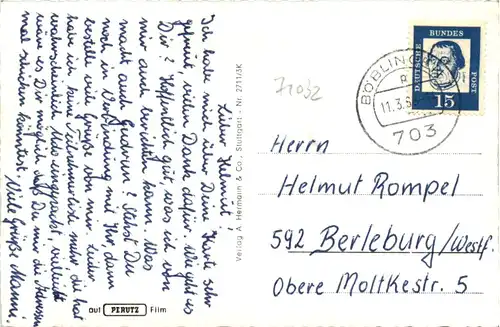 Lieber Helmut!
Ich habe mich über Deine Karte sehr
gefreut, vielen Dank dafür. Wie geht es
Dir? Hoffentlich gut, was ich von
mir auch berichten kann. Was
macht auch Gudrun? Stehst Du
noch in Verbindung mit ihr dann
bestelle viele Grüße von mir. Leider
habe ich keine Teilnehmerliste mehr die hat
wahrscheinlich Utas eingepackt, vielleicht
wäre es Dir möglich daß Du mir die
mal schicken könntest. Viele Grüße Manni.
Verlag A. Hermann & Co., Stuttgart - Nr. 2711/SK
auf PERUTZ Film
71032
DEUTSCHE BUNDESPOST
15
BÖBLINGEN
11.3.6
703
Herrn
Helmut Rompel
592 Berleburg/Westf.
Obere Moltkestr. 5